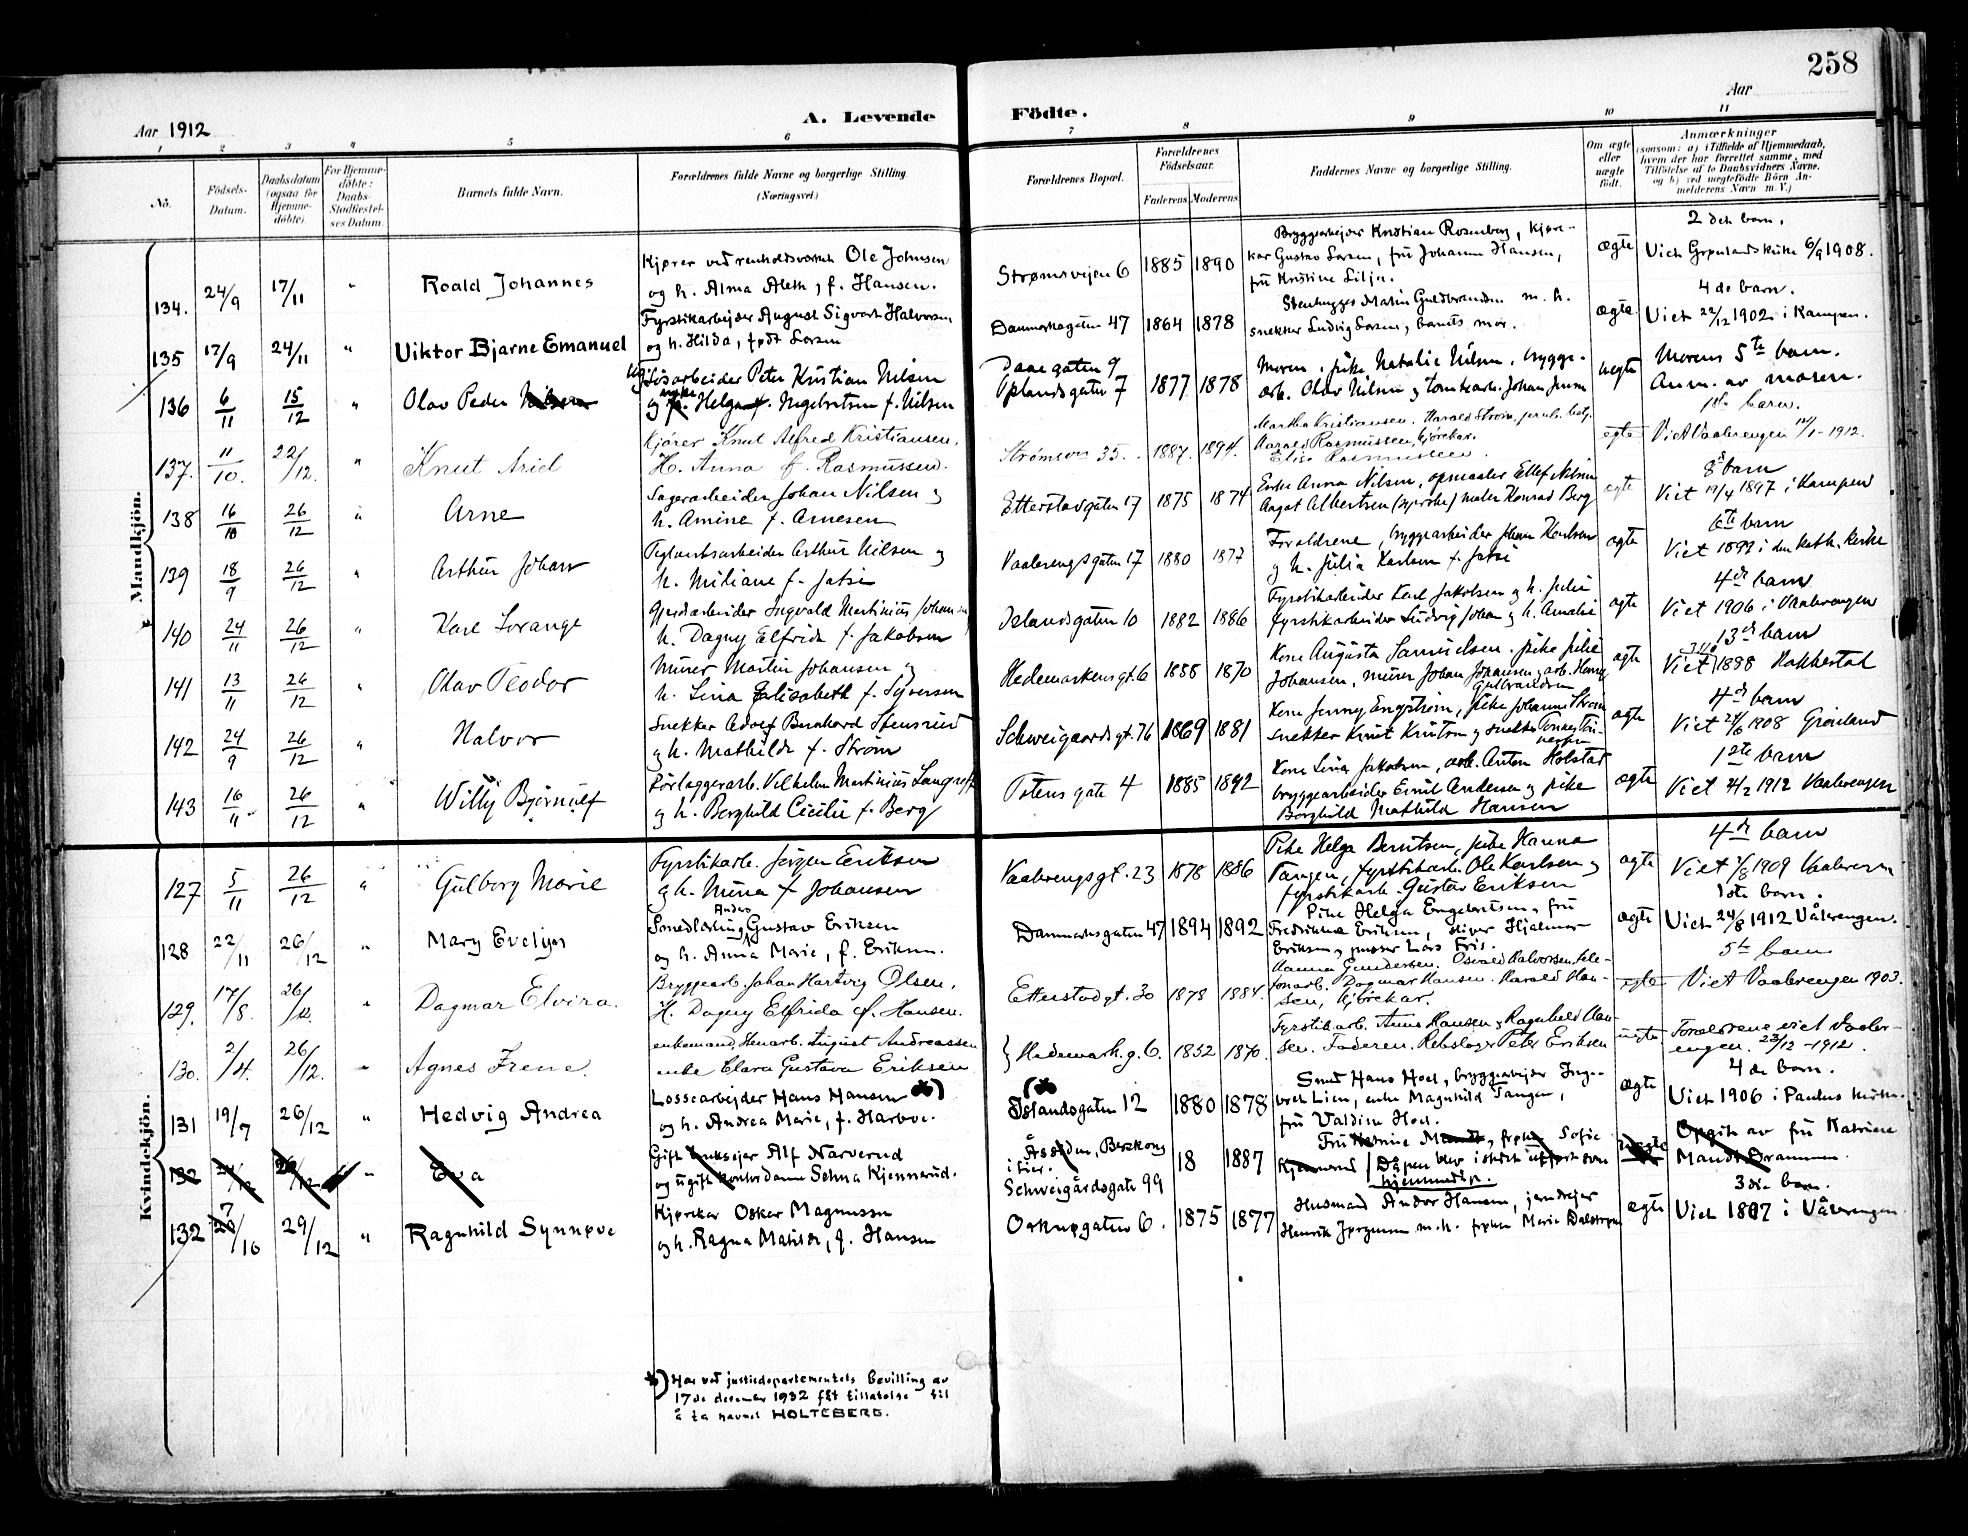 258
Aar 1912
A. Levende Födte.
Aar
1 2 3 4 5 6 7 8 9 10 11
Nô.
Födsels-Datum.
Daabsdatum (ogsaa for Hjemmedöbte).
For Hjemmedöbte: Daabs-Stadfæstelses Datum.
Barnets fulde Navn.
Forældrenes fulde Navne og borgerlige Stilling. (Næringsvei.)
Forældrenes Bopæl.
Forældrenes Födselsaar.
Faderens Moderens
Faddernes Navne og borgerlige Stilling.
Om ægte eller uægte födt.
Anmærkninger (saasom: a) i Tilfælde af Hjemmedaab, hvem der har forrettet samme, med Tilföielse af to Daabsvidners Navne, og b) ved uægtefödte Börn Anmelderens Navn m. V.)
Mandkjön.
134. 24/9 17/11 " Roald Johannes
Kjører ved renholdsvæsenet Ole Johnsen
og h. Alma Aleth, f. Hansen.
Strømsvejen 6 1885 1890
Bryggearbejder Kristian Rosenberg, kjøre-
kar Gustav Larsen, fru Johanne Hansen,
fru Kristine Lilja.
ægte
2 det barn.
Viet Grønlands kirke 6/9 1908.
135 17/9 24/11 " Viktor Bjarne Emanuel
Fyrstikarbejder August Sigvart Halvorsen
og h. Hilda, født Larsen
Danmarksgaten 47 1864 1878
Stenhugger Martin Guldbrandsen m. h.
snekker Ludvig Larsen, barnets mor.
ægte
4 de barn.
Viet 22/12 1902 i Kampen.
136 6/11 15/12 " Olav Peder Nilsen
Løsarbeider Peter Kristian Nilsen
og pike Helga f. Ingebretsen f. Nilsen
Daaegaten 9
Oplandsgaten 7 1877 1878
Moren, pike Natalie Nilsen, brygge-
arb. Olav Nilsen og tomtearb. Johan Jensen
uegte
Morens 5te barn.
Anm. av moren.
137. 11/10. 22/12. " Knut Ariel
Kjører Knut Alfred Kristiansen.
H. Anna f. Rasmussen.
Strømsvn 35. 1887. 1894.
Martha Kristiansen. Harald Strøm, jernb. betj.
Harald Rasmussen, kjørekar.
Elise Rasmussen.
egte
1ste barn.
Viet Vaalerengen 14/1-1912.
138 16/10 26/12 " Arne
Lagerarbeider Johan Nilsen og
h. Amine f. Arnesen
Etterstadgaten 17 1875 1874
Enke Anna Nilsen, opmaaler Ellef Nilsen
Aagot Albertsen (syerske) maler Konrad Berg
egte
8de barn
Viet 19/4 1897 i Kampen
139 18/9 26/12 " Arthur Johan
Teglverksarbeider Arthur Nilsen og
h. Miliane f. Jatsi
Vaalerengsgaten 17 1880 1877
Forældrene, bryggearbeider Johan Karlsen
og h. Julia Karlsen f. Jatsi
ægte
6te barn
Viet 1899 i den kath. kirke
140 24/11 26/12 " Karl Sorange
Gjerdarbeider Ingvald Martinius Johansen
h. Dagny Elfrida f. Jakobsen
Islandsgaten 10 1882 1886
Fyrstikarbeider Karl Jakobsen og h. Julie
fyrstikarbeider Ludvig Johan og h. Amalie
ægte
4de barn
Viet 1906 i Vaalerengen
141 13/11 26/12 " Olav Teodor
Murer Martin Johansen og
h. Lina Elisabeth f. Syversen
Hedemarkensgt. 6 1888 1870
Kone Augusta Samuelsen, pike Julie
Johansen, murer Johan Johansen, arb. Henry
Gulbrandsen
ægte
13de barn
Viet 1898 Hakkestad
142 24/9 26/12 " Halvor
Snekker Adolf Bernhard Stensrud
og h. Mathilde f. Strøm
Schweigaardsgt. 76 1869 1881
Kone Jenny Engstrøm, pike Johanne Strøm
snekker Knut Knutsen og snekker
ægte
4de barn
Viet 24/6 1908 Grønland
143 16/11 26/12 " Willy Bjørnulf
Forlaggerarb. Vilhelm Martinius Langseth
og h. Borghild Cecilie f. Berg
Totens gate 4 1885 1892
Kone Lina Jakobsen, arb. Anton Holstad
bryggearbeider Emil Andersen og pike
Borghild Mathilde Hansen
ægte
1ste barn
Viet 4/2 1912 Vaalerengen
Kvindekjön.
127 5/11 26/12 " Gulborg Marie
Fyrstikarb. Jørgen Eriksen
og h. Mina f. Johansen
Vaalerengsgt. 23 1878 1886
Pike Helga Berntsen, pike Hanna
Tangen, fyrstikarb. Ole Karlsen og
fyrstikarb. Gustav Eriksen
ægte
4de barn
Viet 1/8 1909 Vaaleren.
128 22/11 26/12 " Mary Evelyn
Anders
Gustav Eriksen
og h. Anna Marie, f. Eriksen.
Danmarksgaten 47 1894 1892
Pike Helga Engebretsen, fru
Fredrikke Eriksen, sliper Hjalmar
Eriksen, pusser Lars Fris.
ægte
1ste barn.
Viet 24/8 1912 Vålerengen.
129. 17/8. 26/12. " Dagmar Elvira.
Bryggearb. Johan Hartvig Olsen.
H. Dagny Elfrida f. Hansen.
Etterstadgt. 30 1878 1884.
Hanna Gundersen. Osvald Halvorsen, tele-
fonarb. Dagmar Hansen. Harald Han-
sen, kjørekar.
egte
5te barn
Viet Vaalerengen 1903.
130. 2/4. 26/12. " Agnes Irene.
enkemand, Stenarb. August Andreassen
enke Clara Gustava Eriksen
Hedemark. g. 6. 1852 1870.
Fyrstikarb. Anna Hansen, Ragnhild Han-
sen. Faderen. Rebslager Peter Eriksen
uegte
Forældrene viet Vaaler-
engen. 23/12-1912.
131 19/7 26/12 " Hedvig Andrea
Lossearbejder Hans Hansen *)
og h. Andrea Marie, f. Harboe.
(*
Islandsgaten 12 1880 1878
Smed Hans Hoel, bryggearbejder Inge-
bret Lien, enke Magnhild Tangen,
fru Valdine Hoel.
ægte
4 de barn.
Viet 1906 i Paulus kirke.
132 24/12 26/12 " Eva
Gift bruksejer Alf Narverud
og ugift kontordame Selma Kjennerud.
Åssiden, Buskerud
i Lier.
Schweigårdsgate 99 18 1887
Fru Katrine Mandt, frøken Sofie
Kjennerud / Dåpen blev i sidste uført som
hjemmedåp.
uægte
Opgit av fru Katrine
Mandt Drammen.
132 7/10 29/12 " Ragnhild Synnøve
Kjørekar Oskar Magnussen
og h. Ragna Matilde, f. Hansen
Orknøgaten 6. 1875 1877
Husmand Andor Hansen, jerndrejer
Henrik Jørgensen m. h. frøken Marie Dalstrøm
ægte
3die barn.
Viet 1897 i Vålerengen.
*) Har ved justisdepartementets bevilling av
17de desember 1932 fåt tillatelse til
å ta navnet HOLTEBERG.